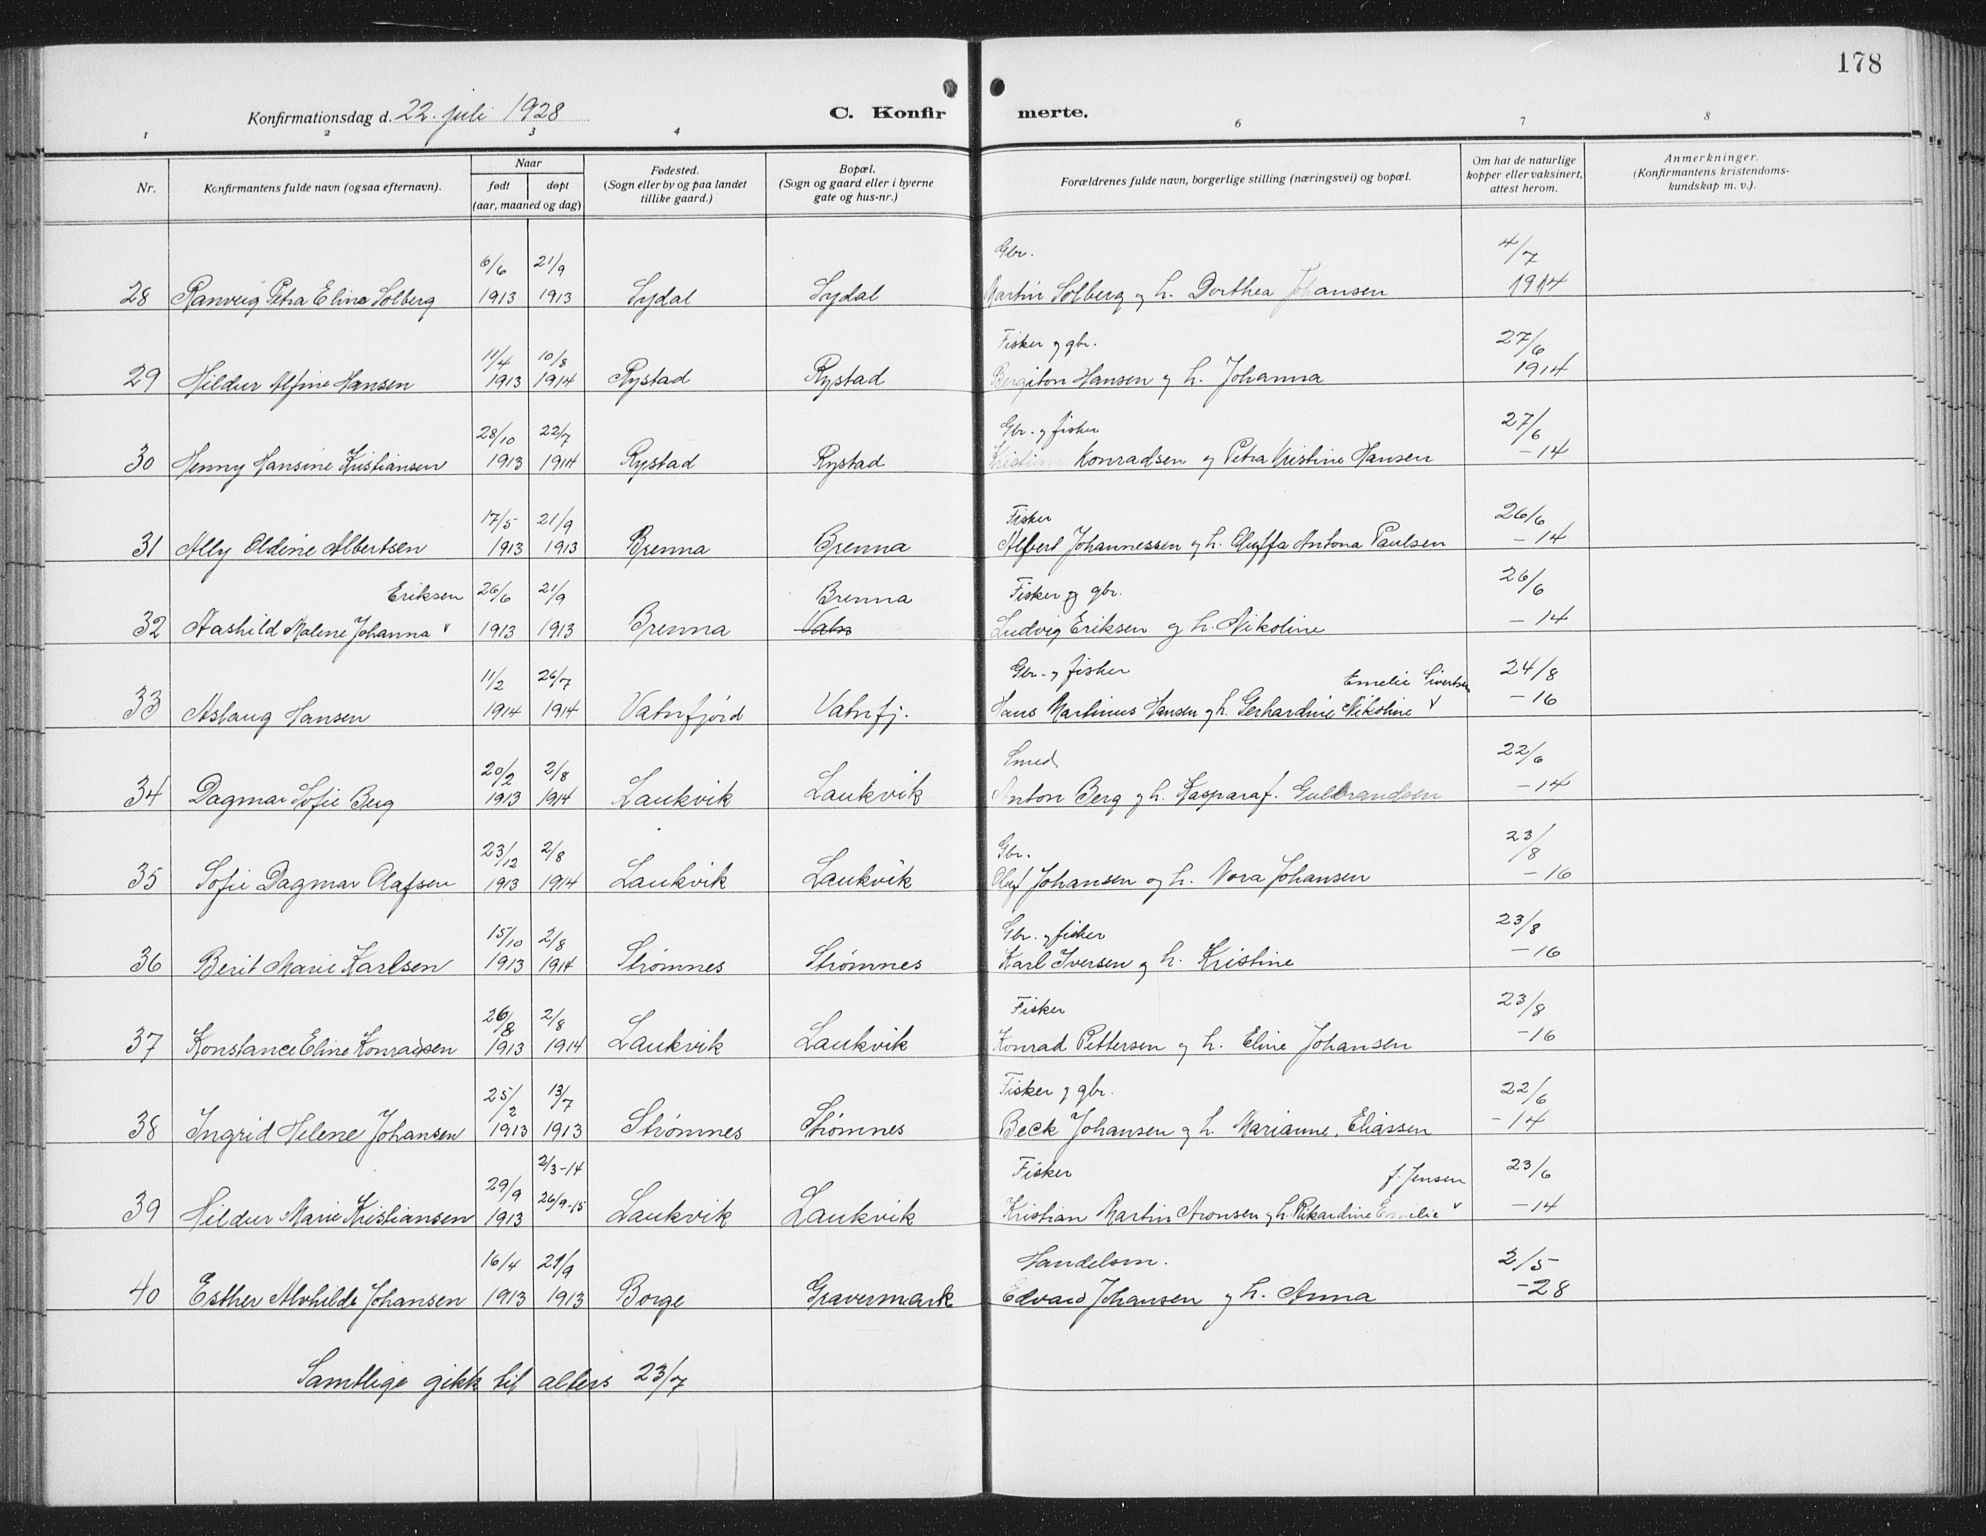 178
Konfirmationsdag d. 22. juli 1928
C. Konfirmerte.
1 2 3 4 6 7 8
Nr.
Konfirmantens fulde navn (ogsaa efternavn).
Naar
født døpt
(aar, maaned og dag)
Fødested.
(Sogn eller by og paa landet
tillike gaard.)
Bopæl.
(Sogn og gaard eller i byerne
gate og hus-nr.)
Forældrenes fulde navn, borgerlige stilling (næringsvei) og bopæl.
Om hat de naturlige
kopper eller vaksinert,
attest herom.
Anmerkninger.
(Konfirmantens kristendoms-
kundskap m. v.).
6/6 21/9 Gbr. 4/7
28 Ranveig Petra Eline Solberg 1913 1913 Sydal Sydal Martin Solberg og h. Dorthea Johansen 1914
11/4 10/8 Fisker og gbr. 27/6
29 Hildur Alfine Hansen 1913 1914 Rystad Rystad Bergiton Hansen og h. Johanna 1914
28/10 22/7 Gbr. og fisker 27/6
30 Henny Hansine Kristiansen 1913 1914 Rystad Rystad Kristian Konradsen og Petra Kristine Hansen -14
17/5 21/9 Fisker 26/6
31 Ally Oldine Albertsen 1913 1913 Brenna Brenna Albert Johannessen og h. Oluffa Antona Paulsen -14
Eriksen 26/6 21/9 Brenna Fisker og gbr. 26/6
32 Aashild Malene Johanna v 1913 1913 Brenna Vatn Ludvig Eriksen og h. Nikoline -14
11/2 26/7 Gbr. og fisker Emelie Sivertsen 24/8
33 Aslaug Hansen 1914 1914 Vatnfjord Vatnfj. Hans Martinus Hansen og h. Gerhardine Nikoline v -16
20/2 2/8 Smed 22/6
34 Dagmar Sofie Berg 1913 1914 Laukvik Laukvik Anton Berg og h. Kaspara f. Gulbrandsen -14
23/12 2/8 Gbr. 23/8
35 Sofie Dagmar Olafsen 1913 1914 Laukvik Laukvik Oluf Johansen og h. Nora Johansen -16
15/10 2/8 Gbr. og fisker 23/8
36 Berit Marie Karlsen 1913 1914 Strømnes Strømnes Karl Iversen og h. Kristine -16
26/8 2/8 Fisker 23/8
37 Konstance Eline Konradsen 1913 1914 Laukvik Laukvik Konrad Pettersen og h. Eline Johansen -16
25/2 13/7 Fisker og gbr. 22/6
38 Ingrid Helene Johansen 1913 1913 Strømnes Strømnes Beck Johansen og h. Marianne Eliassen -14
29/9 2/3-14 Fisker f. Jensen 23/6
39 Hildur Marie Kristiansen 1913 26/9-15 Laukvik Laukvik Kristian Martin Aronsen og h. Rikardine Emelie v -14
16/4 21/9 Handelsm. 2/5
40 Esther Alvhilde Johansen 1913 1913 Borge Gravermark Edvard Johansen og h. Anna -28
Samtlige gikk til alters 23/7